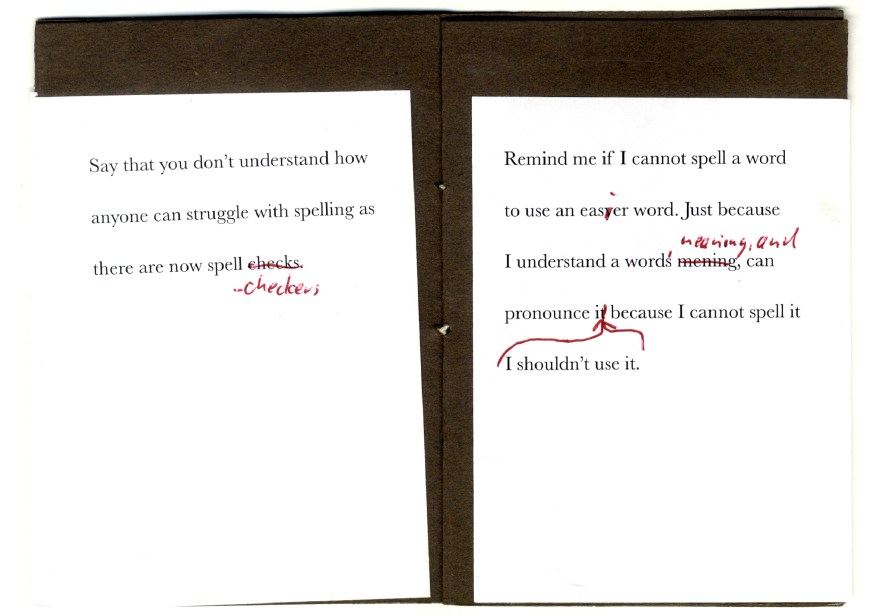 Say that you don't understand how
anyone can struggle with spelling as
there are now spell checks.
-checkers
Remind me if I cannot spell a word
to use an easyer word. Just because
i
meaning, and
I understand a words' mening, can
pronounce it because I cannot spell it
I shouldn't use it.